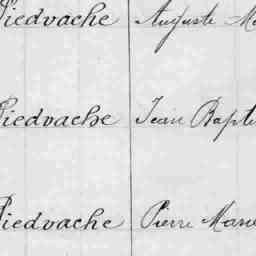 Piedvache Auguste Ma
Piedvache Jean Bapti
Piedvache Pierre Marie